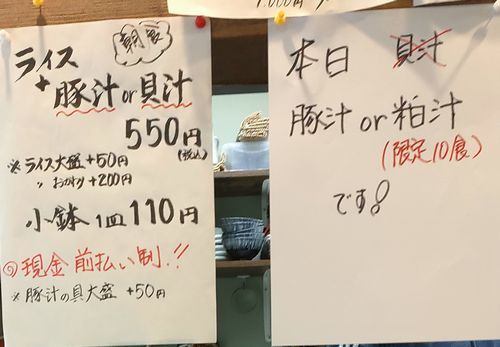 1.000円
朝食
ライス
+豚汁or貝汁
550円
(税込)
※ライス大盛+50円
〃 おかわり+200円
小鉢1皿110円
◎現金前払い制!!
※豚汁の具大盛 +50円
本日 貝汁
豚汁or粕汁
(限定10食)
です!